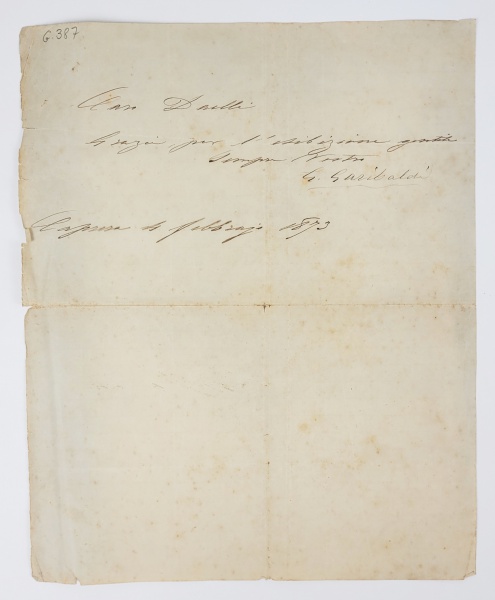 G. 387
Caro Daelli
Grazie per l'esibizione gentile
Sempre Vostro
G. Garibaldi
Caprera 4 febbrajo 1873